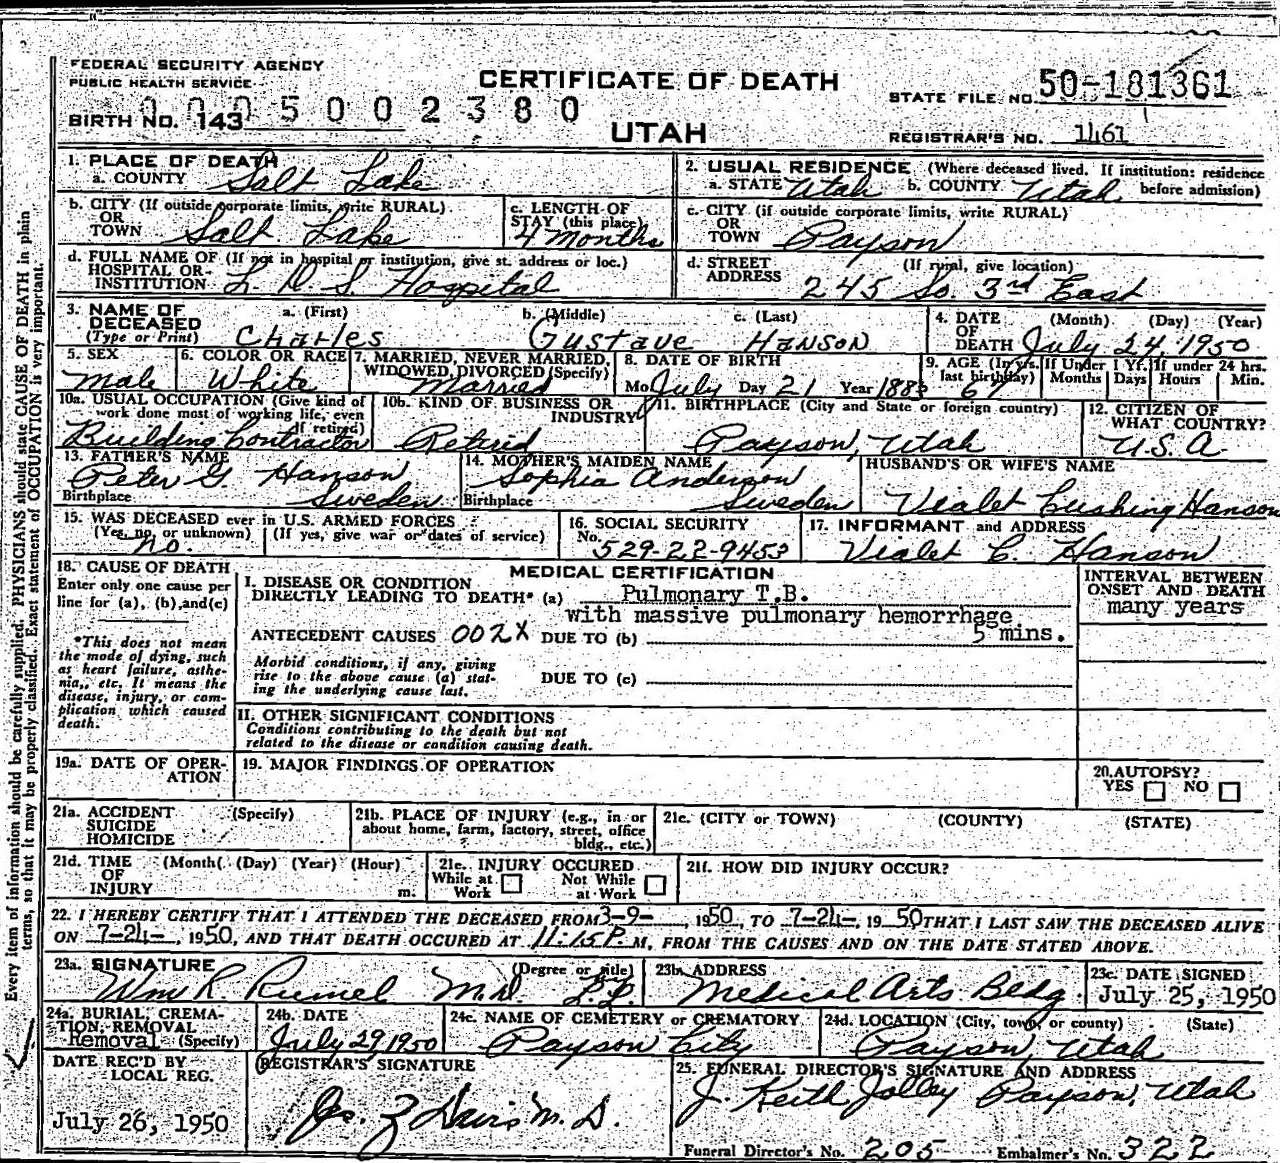 FEDERAL SECURITY AGENCY
PUBLIC HEALTH SERVICE
CERTIFICATE OF DEATH
UTAH
STATE FILE NO. 50-181361
0005002380
BIRTH NO. 143
REGISTRAR'S NO. 1461
1. PLACE OF DEATH
a. COUNTY Salt Lake
2. USUAL RESIDENCE (Where deceased lived. If institution: residence before admission)
a. STATE Utah b. COUNTY Utah
b. CITY (If outside corporate limits, write RURAL) OR TOWN Salt Lake
c. LENGTH OF STAY (this place) 4 Months
c. CITY (if outside corporate limits, write RURAL) OR TOWN Payson
d. FULL NAME OF (If not in hospital or institution, give st. address or loc.) HOSPITAL OR INSTITUTION L. D. S. Hospital
d. STREET ADDRESS (If rural, give location) 245 So. 3rd East
3. NAME OF DECEASED (Type or Print) a. (First) Charles b. (Middle) Gustave c. (Last) Hanson
4. DATE OF DEATH (Month) (Day) (Year) July 24 1950
5. SEX Male
6. COLOR OR RACE White
7. MARRIED, NEVER MARRIED, WIDOWED, DIVORCED (Specify) Married
8. DATE OF BIRTH Mo. July Day 21 Year 1883
9. AGE (In yrs. last birthday) 67 If Under 1 Yr. Months Days If under 24 hrs. Hours Min.
10a. USUAL OCCUPATION (Give kind of work done most of working life, even if retired) Building Contractor
10b. KIND OF BUSINESS OR INDUSTRY Retired
11. BIRTHPLACE (City and State or foreign country) Payson, Utah
12. CITIZEN OF WHAT COUNTRY? U.S.A.
13. FATHER'S NAME Peter G. Hanson
Birthplace Sweden
14. MOTHER'S MAIDEN NAME Sophia Anderson
Birthplace Sweden
HUSBAND'S OR WIFE'S NAME
Vialet Cushing Hanson
15. WAS DECEASED ever in U.S. ARMED FORCES?
(Yes, no, or unknown) (If yes, give war or dates of service)
no.
16. SOCIAL SECURITY No. 529-22-9453
17. INFORMANT and ADDRESS
Vialet C. Hanson
18. CAUSE OF DEATH
Enter only one cause per line for (a), (b), and (c)
*This does not mean the mode of dying, such as heart failure, asthenia, etc. It means the disease, injury, or complication which caused death.
MEDICAL CERTIFICATION
INTERVAL BETWEEN ONSET AND DEATH
I. DISEASE OR CONDITION DIRECTLY LEADING TO DEATH* (a) Pulmonary T.B. many years
with massive pulmonary hemorrhage
5 mins.
ANTECEDENT CAUSES 002X DUE TO (b)
Morbid conditions, if any, giving rise to the above cause (a) stating the underlying cause last.
DUE TO (c)
II. OTHER SIGNIFICANT CONDITIONS
Conditions contributing to the death but not related to the disease or condition causing death.
19a. DATE OF OPERATION
19. MAJOR FINDINGS OF OPERATION
20. AUTOPSY? YES NO
21a. ACCIDENT SUICIDE HOMICIDE (Specify)
21b. PLACE OF INJURY (e.g., in or about home, farm, factory, street, office bldg., etc.)
21c. (CITY or TOWN) (COUNTY) (STATE)
21d. TIME OF INJURY (Month) (Day) (Year) (Hour) m.
21e. INJURY OCCURED While at Work Not While at Work
21f. HOW DID INJURY OCCUR?
22. I HEREBY CERTIFY THAT I ATTENDED THE DECEASED FROM 3-9-, 1950, TO 7-24-, 1950 THAT I LAST SAW THE DECEASED ALIVE
ON 7-24-, 1950, AND THAT DEATH OCCURED AT 11:15 P. M, FROM THE CAUSES AND ON THE DATE STATED ABOVE.
23a. SIGNATURE (Degree or title)
Wm R. Rumel M.D.
23b. ADDRESS
Medical Arts Bldg
23c. DATE SIGNED
July 25, 1950
24a. BURIAL, CREMATION, REMOVAL (Specify) Removal
24b. DATE July 29, 1950
24c. NAME OF CEMETERY or CREMATORY Payson City
24d. LOCATION (City, town, or county) (State) Payson, Utah
DATE REC'D BY LOCAL REG.
July 26, 1950
REGISTRAR'S SIGNATURE
25. FUNERAL DIRECTOR'S SIGNATURE AND ADDRESS
J. Keith Jolley Payson, Utah
Funeral Director's No. 205 Embalmer's No. 322
Every item of information should be carefully supplied. PHYSICIANS should state CAUSE OF DEATH in plain
terms, so that it may be properly classified. Exact statement of OCCUPATION is very important.